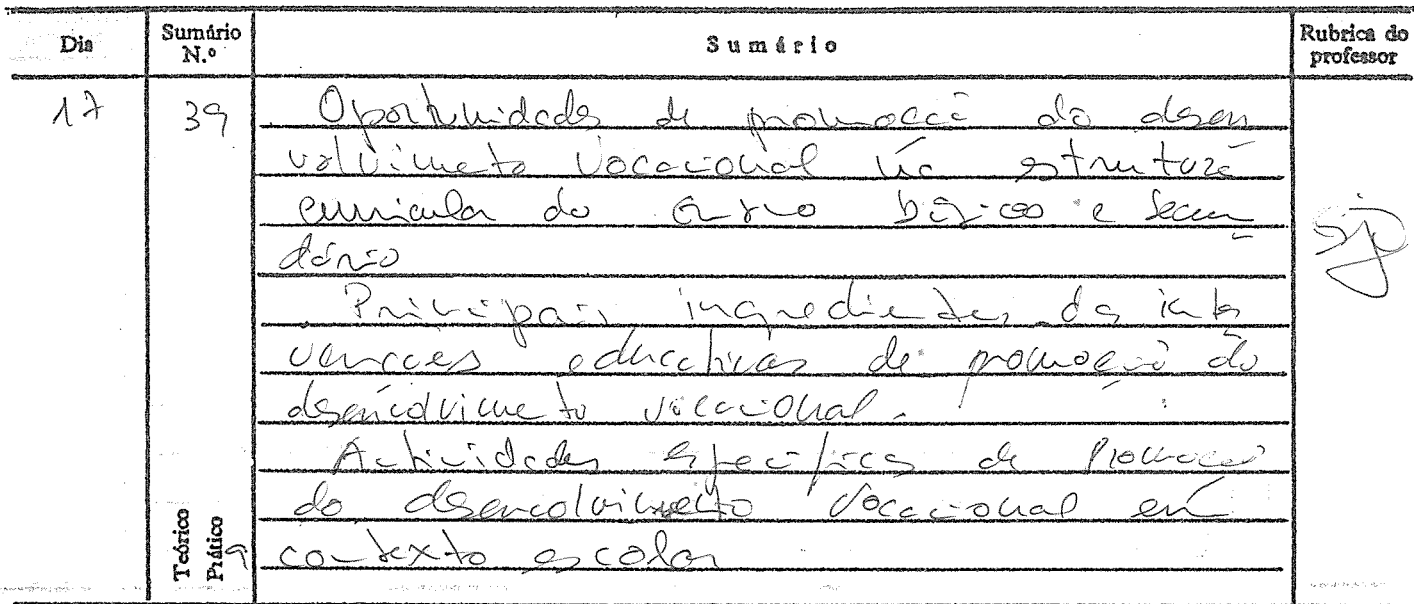 Dia Sumário N.º Sumário Rubrica do professor
17 39 Oportunidades de promoção do desen
volvimento vocacional na estrutura
curricular do ensino básico e secun
dário
Principais ingredientes das inter
venções educativas de promoção do
desenvolvimento vocacional.
Actividades específicas de Promoção
do desenvolvimento vocacional em
contexto escolar
Teórico
Prático